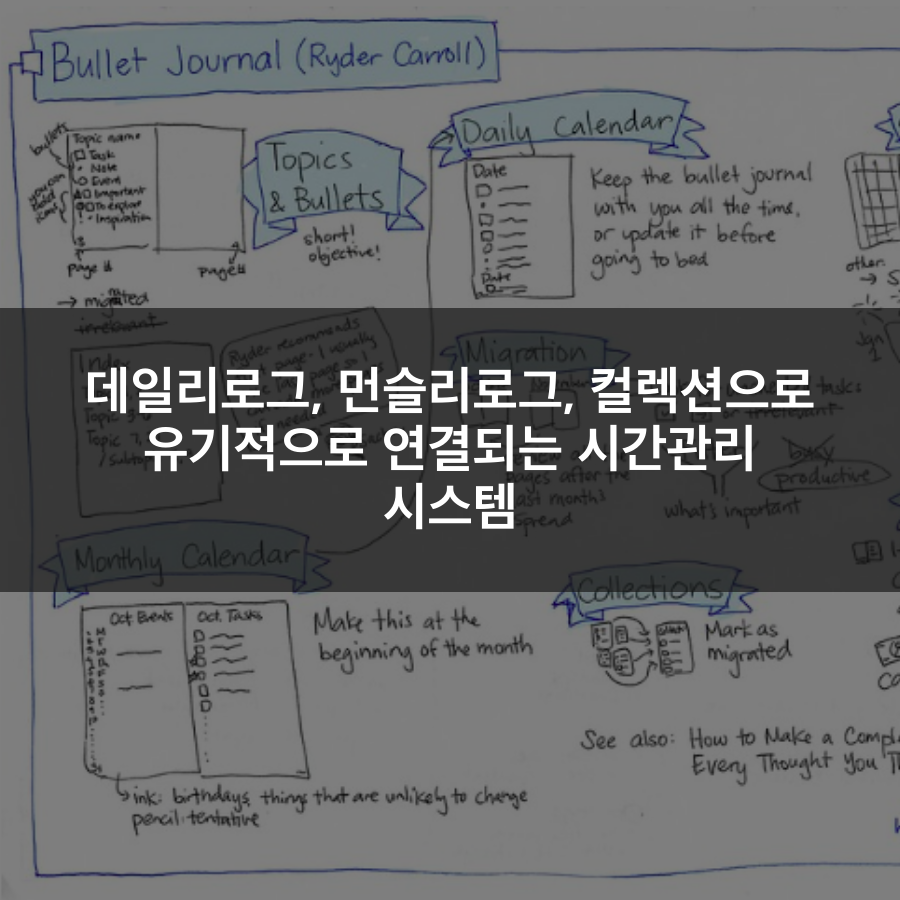 Bullet Journal (Ryder Carroll)
bullets
Topic name
Task
Note
Event
Important
To explore
Inspiration
page #
page #
Topics
& Bullets
short!
objective!
→ migrated
irrelevant
Daily Calendar
Date
Date
Keep the bullet journal
with you all the time,
or update it before
going to bed
other
Index
Topic
Topic
Ryder recommends
page - I usually
Migration
데일리로그, 먼슬리로그, 컬렉션으로
유기적으로 연결되는 시간관리
시스템
tasks
irrelevant
pages after the
last month's
spread
what's important
busy
productive
Monthly Calendar
Oct. Events
Oct. Tasks
Make this at the
beginning of the month
ink: birthdays, things that are unlikely to change
pencil: tentative
Collections
Mark as
migrated
See also: How to Make a Compl
Every Thought You T